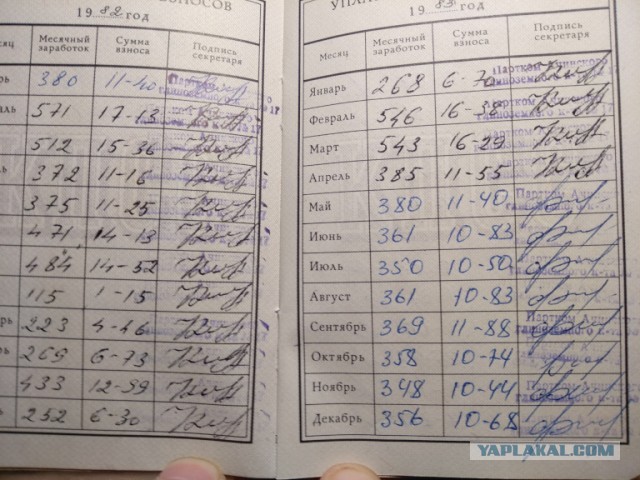 ВЗНОСОВ
19 82 год
месяц Месячный заработок Сумма взноса Подпись секретаря
рь 380 11-40
аль 571 17-13
512 15-36
372 11-16
375 11-25
471 14-13
484 14-52
115 1-15
рь 223 4-46
ь 269 6-73
433 12-99
ь 252 6-30
УПЛА
19 83 год
Месяц Месячный заработок Сумма взноса Подпись секретаря
Январь 268 6-70
Февраль 546 16-38
Март 543 16-29
Апрель 385 11-55
Май 380 11-40
Июнь 361 10-83
Июль 350 10-50
Август 361 10-83
Сентябрь 369 11-88
Октябрь 358 10-74
Ноябрь 348 10-44
Декабрь 356 10-68
YAPLAKAL.COM